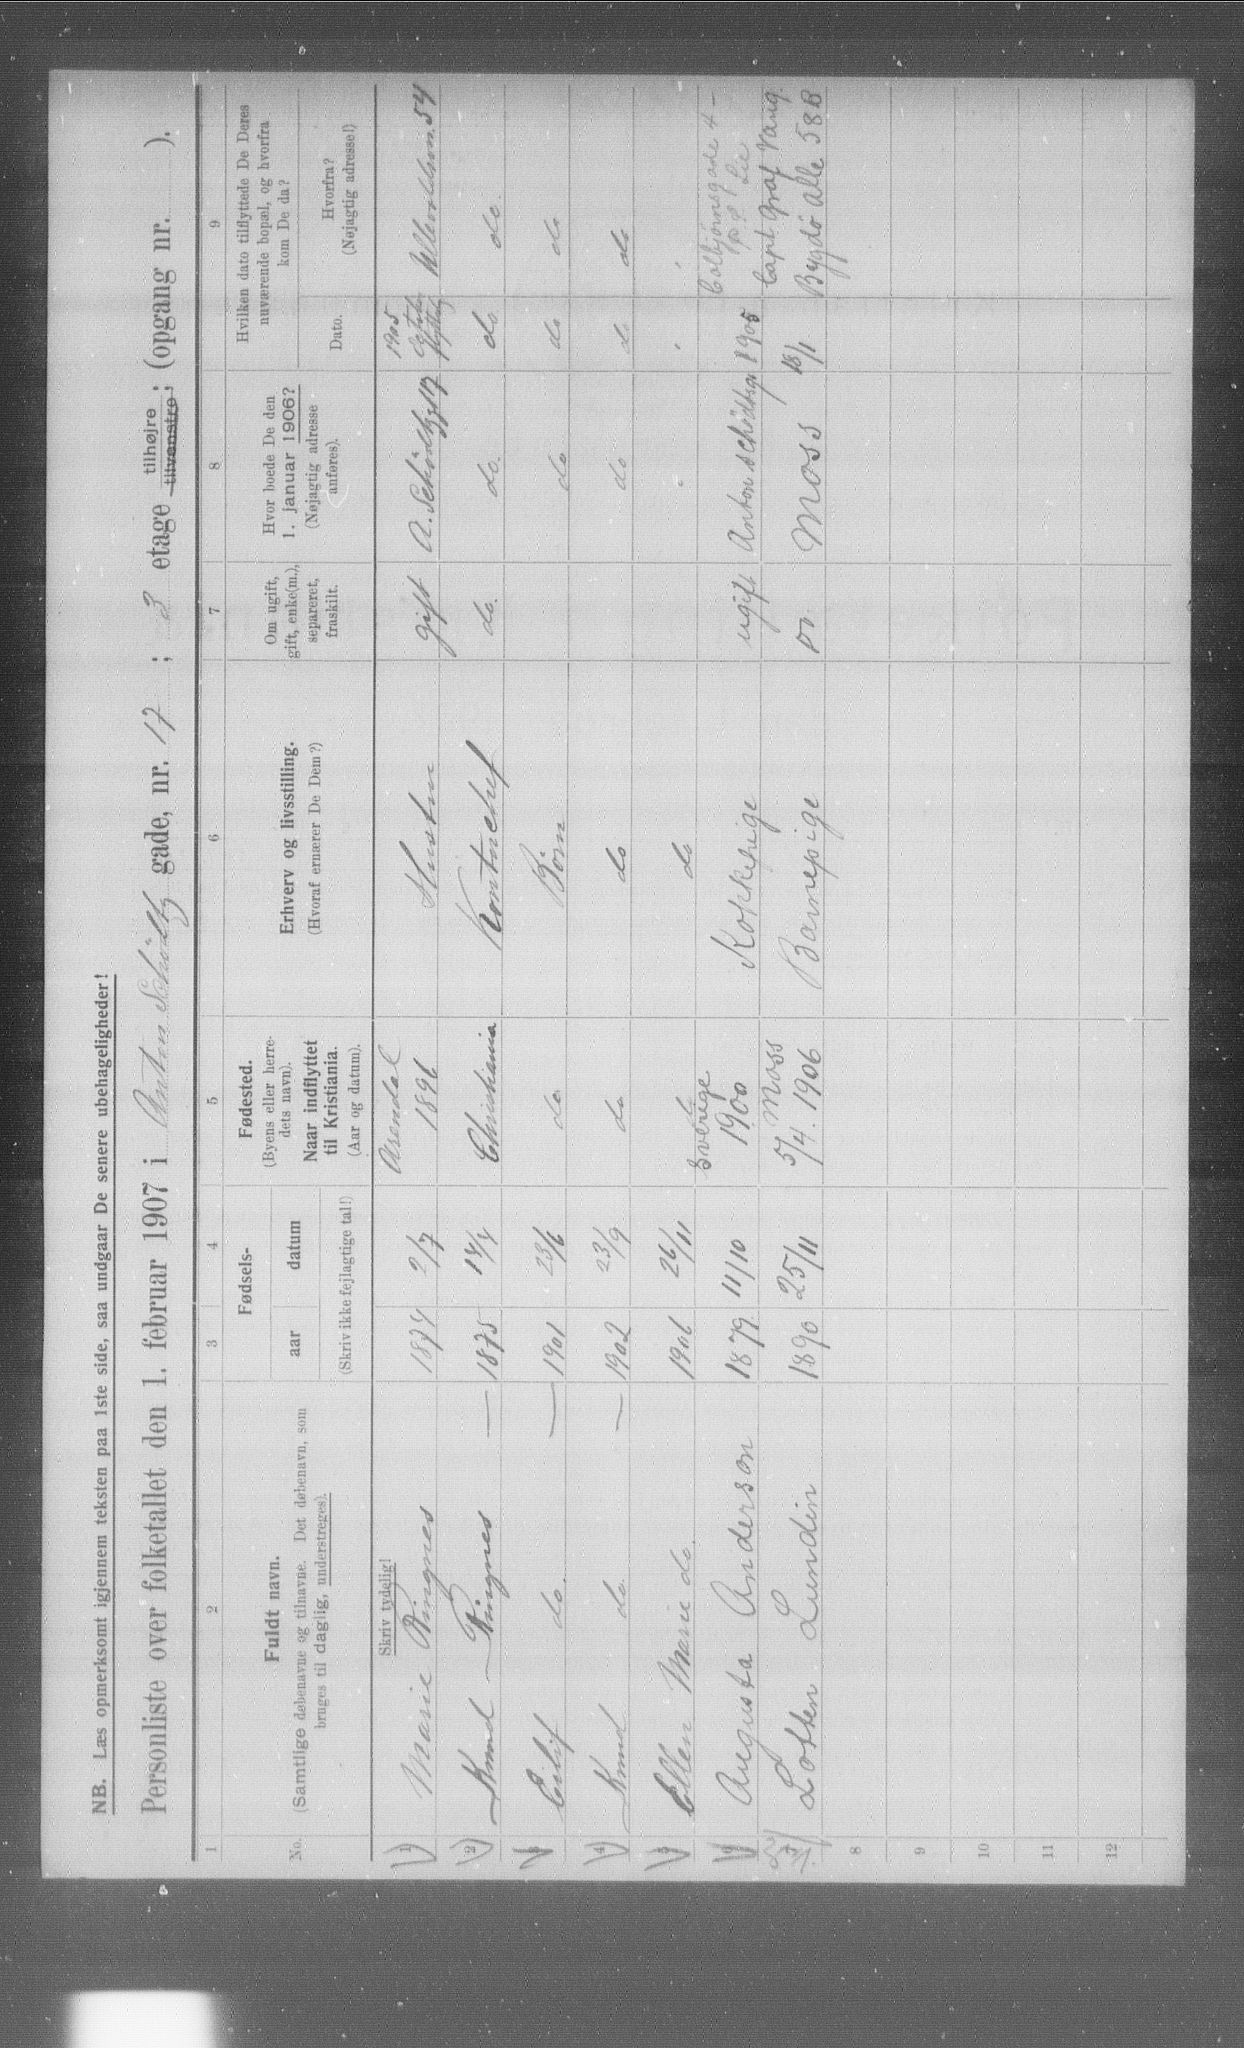 NB. Læs opmerksomt igjennem teksten paa 1ste side, saa undgaar De senere ubehageligheder!
Personliste over folketallet den 1. februar 1907 i Anton Schiøtts gade, nr. 17 ; 3 etage tilhøjre tilvenstre ; (opgang nr. ).
1 2 3 4 5 6 7 8 9
No.
Fuldt navn.
(Samtlige døbenavne og tilnavne. Det døbenavn, som
bruges til daglig, understreges).
Fødsels-
aar datum
(Skriv ikke fejlagtige tal!)
Fødested.
(Byens eller herre-
dets navn).
Naar indflyttet
til Kristiania.
(Aar og datum).
Erhverv og livsstilling.
(Hvoraf ernærer De Dem?)
Om ugift,
gift, enke(m.),
separeret,
fraskilt.
Hvor boede De den
1. januar 1906?
(Nøjagtig adresse
anføres).
Hvilken dato tilflyttede De Deres
nuværende bopæl, og hvorfra
kom De da?
Dato.
Hvorfra?
(Nøjagtig adresse!)
Skriv tydelig!
1 Marie Ringnes 1874 2/7 Arendal 1896 Hustru gift A. Schiøttsgt 17 1905 Ullevoldsvn. 54
2 Knud Ringnes — 1875 14/4 Christiania Kontorchef do. do. do do.
3 Eilif do. — 1901 23/6 do Børn do do do
4 Knud do. — 1902 23/9 do do do do do
5 Ellen Marie do. 1906 26/11 do do
6 Augusta Anderson 1879 11/10 Sverige 1900 Kokkepige ugift Anton Schiøttsgt 1905 Colbjørnsgade 4 -
Lie
7 Lotten Lundin 1890 25/11 Moss 5/4. 1906 Barnepige do. Moss 18/1 Capt Graf Vang.
Bygdø alle 58B
8
9
10
11
12